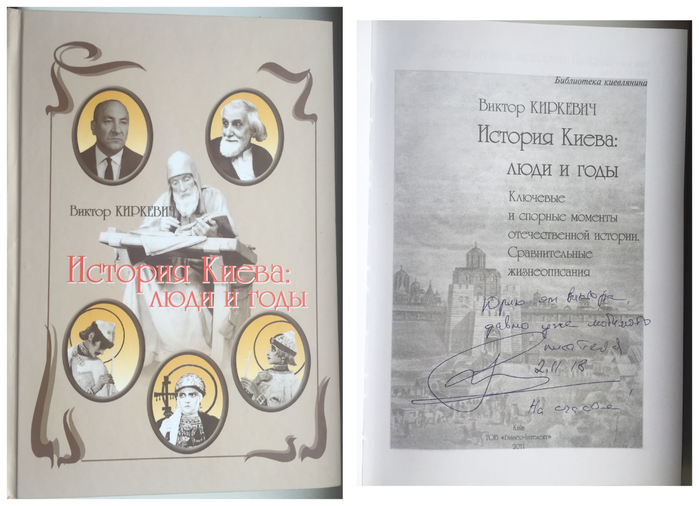 Виктор КИРКЕВИЧ
История Киева:
люди и годы
Библиотека киевлянина
Виктор КИРКЕВИЧ
История Киева:
люди и годы
Ключевые
и спорные моменты
отечественной истории.
Сравнительные
жизнеописания
Юрию от Виктора,
давно уже
2.11.18
На счастье
Київ
2011